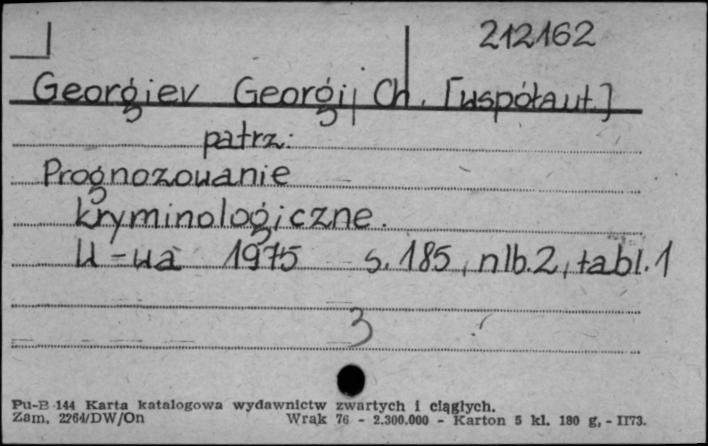 212162
Georgiev Georgij Ch. [współaut.]
patrz:
Prognozowanie
kryminologiczne.
W-wa 1975 s. 185, nlb. 2, tabl. 1
3
Pu-B 144 Karta katalogowa wydawnictw zwartych i ciągłych.
Zam. 2264/DW/On Wrak 76 - 2.300.000 - Karton 5 kl. 180 g, - II73.